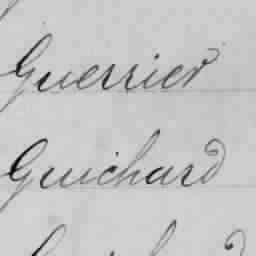 Guerrier
Guichard